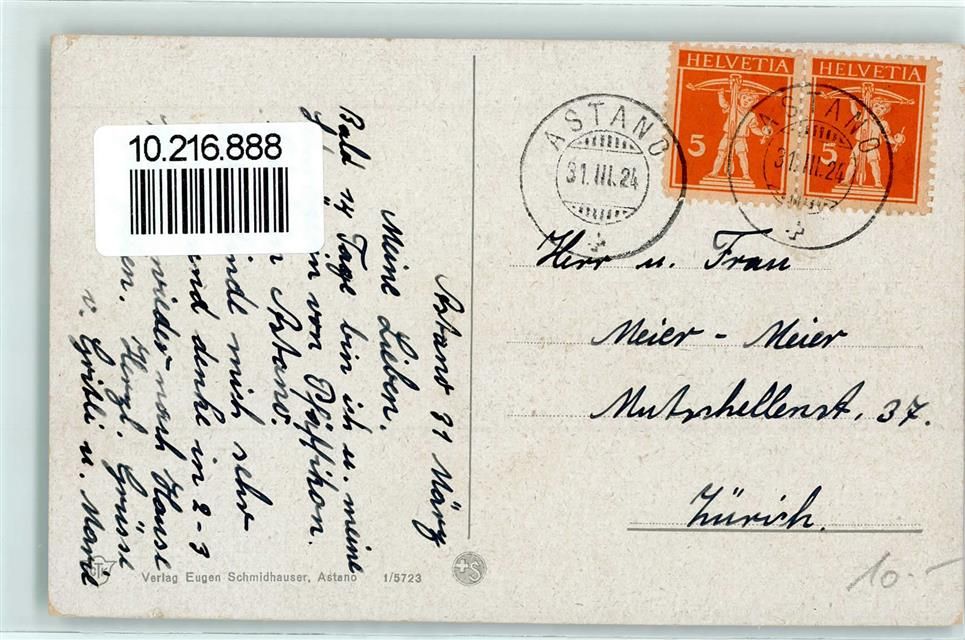 10.216.888
HELVETIA
HELVETIA
5
5
ASTANO
31.III.24
ASTANO
31.III.24
Astano 31 März
Meine Lieben.
Bald 14 Tage bin ich u. meine
von Pfäffikon.
Astano.
mich sehr
und denke in 2-3
wieder nach Hause
Herzl. Grüsse
v. Gritli u. Marie
Herr u. Frau
Meier - Meier
Mutschellenst. 37.
Zürich.
Verlag Eugen Schmidhauser, Astano 1/5723
+S
10.-